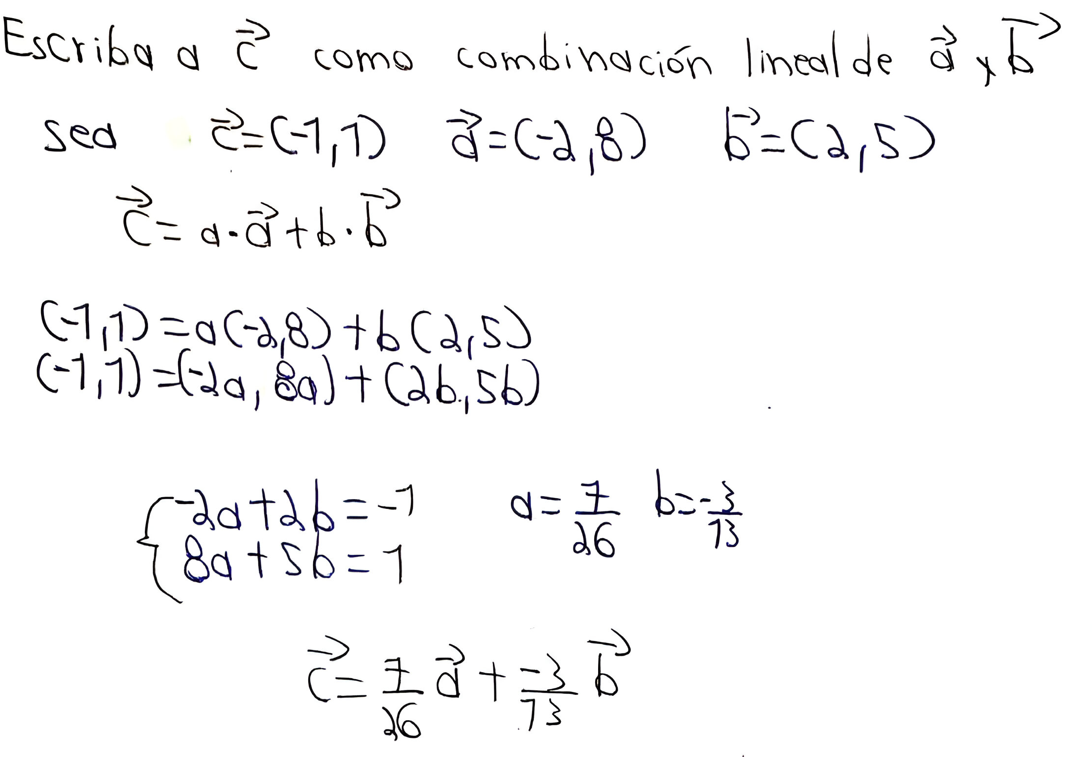 Escriba a c⃗ como combinación lineal de a⃗ y b⃗
sea c⃗=(-1,1) a⃗=(-2,8) b⃗=(2,5)
c⃗=a·a⃗+b·b⃗
(-1,1)=a(-2,8)+b(2,5)
(-1,1)=(-2a, 8a)+(2b,5b)
-2a+2b=-1 a=7/26 b=-3/13
8a+5b=1
c⃗=7/26 a⃗+-3/13 b⃗